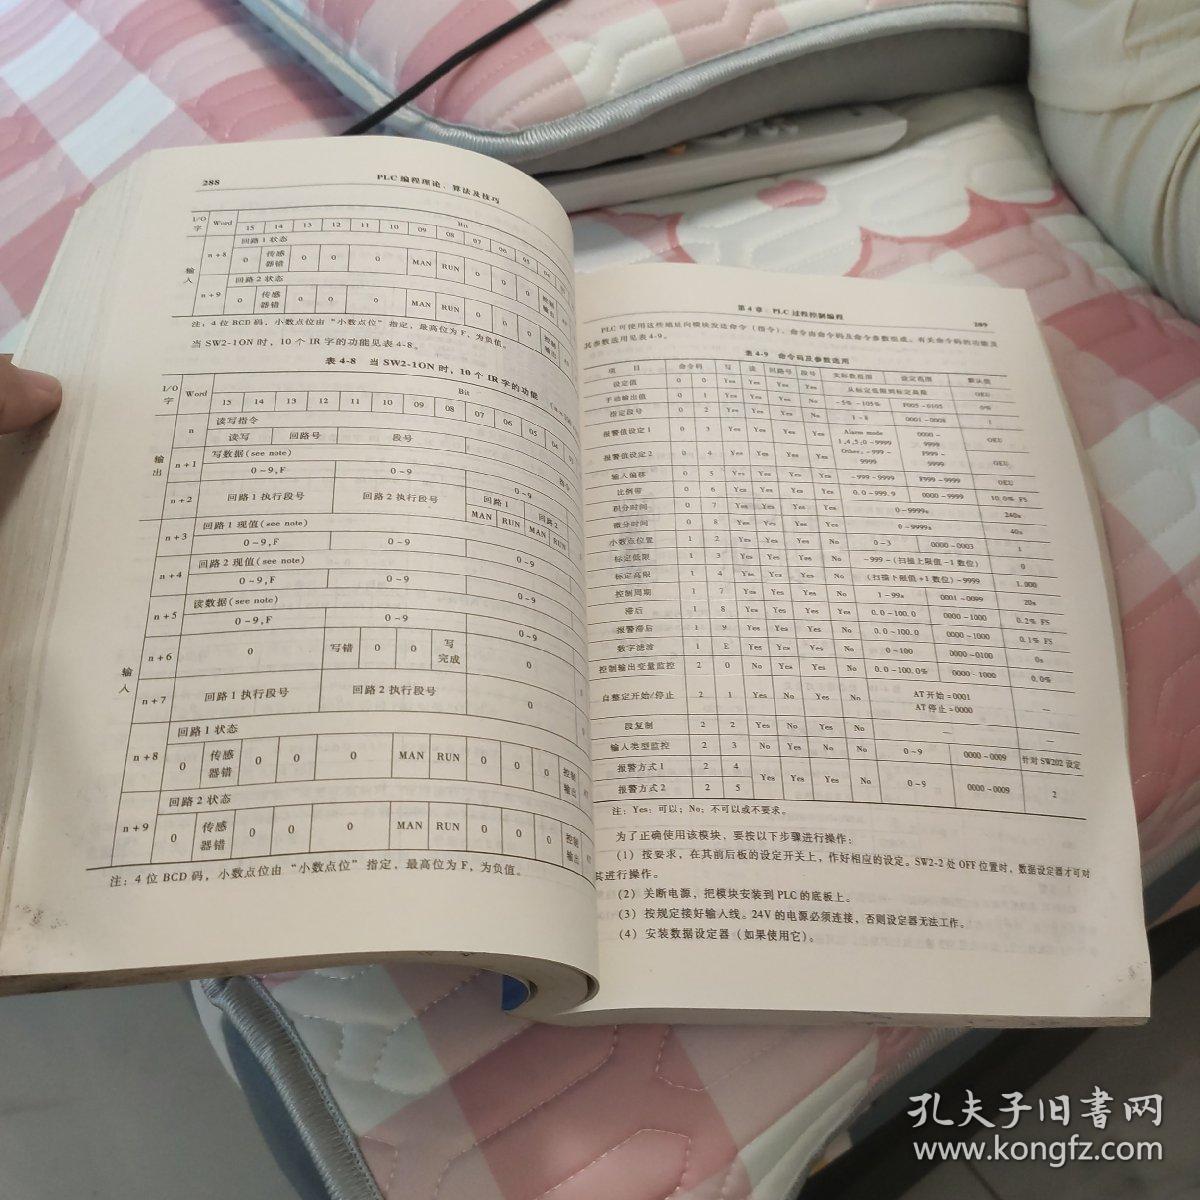 288
PLC 编程理论、算法及技巧
I/O字 Word Bit
15 14 13 12 11 10 09 08 07 06 05 04
输入 n+8 回路 1 状态
0 传感器错 0 0 0 MAN RUN 0 0 0 控制输出
n+9 回路 2 状态
0 传感器错 0 0 0 MAN RUN 0 0 0 控制输出
注：4 位 BCD 码，小数点位由“小数点位”指定，最高位为 F，为负值。
当 SW2-1ON 时，10 个 IR 字的功能见表 4-8。
表 4-8 当 SW2-1ON 时，10 个 IR 字的功能
I/O字 Word Bit
15 14 13 12 11 10 09 08 07 06 05 04
输出 n 读写指令
读写 回路号 段号
n+1 写数据(see note)
0~9,F 0~9 0~9
n+2 回路 1 执行段号 回路 2 执行段号 回路 1 回路 2
MAN RUN MAN RUN
输入 n+3 回路 1 现值(see note)
0~9,F 0~9 0~9
n+4 回路 2 现值(see note)
0~9,F 0~9 0~9
n+5 读数据(see note)
0~9,F 0~9 0~9
n+6 0 写错 0 0 写完成 0
n+7 回路 1 执行段号 回路 2 执行段号 0
n+8 回路 1 状态
0 传感器错 0 0 0 MAN RUN 0 0 0 控制输出
n+9 回路 2 状态
0 传感器错 0 0 0 MAN RUN 0 0 0 控制输出
注：4 位 BCD 码，小数点位由“小数点位”指定，最高位为 F，为负值。
第 4 章 PLC 过程控制编程
289
PLC 可使用这些地址向模块发送命令（指令）、命令由命令码及命令参数组成。有关命令码的功能及
其参数选用见表 4-9。
表 4-9 命令码及参数选用
项 目 命令码 写 读 回路号 段号 实际数范围 设定范围 默认值
设定值 0 0 Yes Yes Yes Yes 从标定低限到标定高限 OEU
手动输出值 0 1 Yes Yes Yes No -5%~105% F005~0105 0%
指定段号 0 2 Yes Yes Yes No 1~8 0001~0008 1
报警值设定 1 0 3 Yes Yes Yes Yes Alarm mode 1;4,5;0~9999 0000~9999 OEU
报警值设定 2 0 4 Yes Yes Yes Yes Other: -999~9999 F999~9999 OEU
输入偏移 0 5 Yes Yes Yes Yes -999~9999 F999~9999 OEU
比例带 0 6 Yes Yes Yes Yes 0.0~999.9 0000~9999 10.0% FS
积分时间 0 7 Yes Yes Yes Yes 0~9999s 240s
微分时间 0 8 Yes Yes Yes Yes 0~9999s 40s
小数点位置 1 2 Yes Yes Yes No 0~3 0000~0003 1
标定低限 1 3 Yes Yes Yes No -999~(扫描上限值-1 数位) 0
标定高限 1 4 Yes Yes Yes No (扫描下限值+1 数位)~9999 1.000
控制周期 1 7 Yes Yes Yes No 1~99s 0001~0099 20s
滞后 1 8 Yes Yes Yes Yes 0.0~100.0 0000~1000 0.2% FS
报警滞后 1 9 Yes Yes Yes No 0.0~100.0 0000~1000 0.1% FS
数字滤波 1 E Yes Yes Yes No 0~100 0000~0100 0s
控制输出变量监控 2 0 No Yes Yes No 0.0~100.0% 0000~1000 0.0%
自整定开始/停止 2 1 Yes No Yes No AT 开始=0001 —
AT 停止=0000
段复制 2 2 Yes No Yes No — —
输入类型监控 2 3 No Yes No No 0~9 0000~0009 针对 SW202 设定
报警方式 1 2 4 Yes Yes Yes No 0~9 0000~0009 2
报警方式 2 2 5
注：Yes：可以；No：不可以或不要求。
为了正确使用该模块，要按以下步骤进行操作：
（1）按要求，在其前后板的设定开关上，作好相应的设定。SW2-2 处 OFF 位置时，数据设定器才可对
其进行操作。
（2）关断电源，把模块安装到 PLC 的底板上。
（3）按规定接好输入线。24V 的电源必须连接，否则设定器无法工作。
（4）安装数据设定器（如果使用它）。
孔夫子旧书网
www.kongfz.com